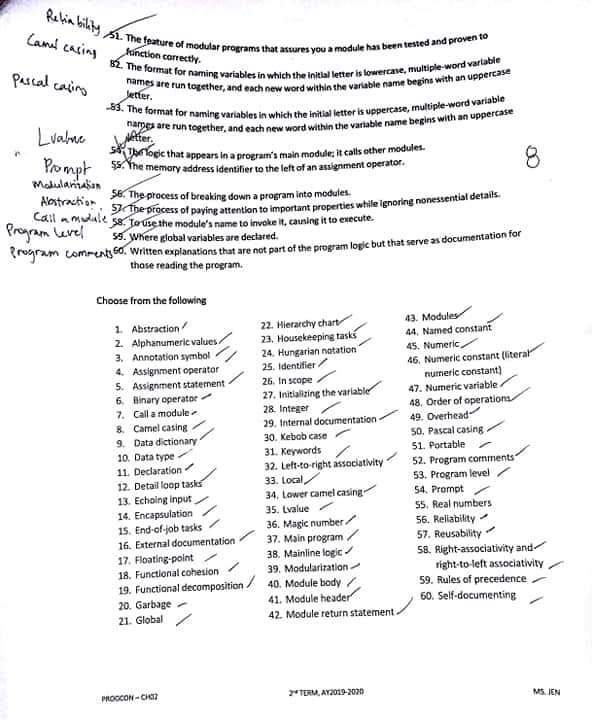 Reliability 51. The feature of modular programs that assures you a module has been tested and proven to
function correctly.
Camel casing 52. The format for naming variables in which the initial letter is lowercase, multiple-word variable
names are run together, and each new word within the variable name begins with an uppercase
letter.
Pascal casing 53. The format for naming variables in which the initial letter is uppercase, multiple-word variable
names are run together, and each new word within the variable name begins with an uppercase
letter.
Lvalue 54. The logic that appears in a program's main module; it calls other modules.
Prompt 55. The memory address identifier to the left of an assignment operator.
8
Modularization 56. The process of breaking down a program into modules.
Abstraction 57. The process of paying attention to important properties while ignoring nonessential details.
Call a module 58. To use the module's name to invoke it, causing it to execute.
Program level 59. Where global variables are declared.
Program comments 60. Written explanations that are not part of the program logic but that serve as documentation for
those reading the program.
Choose from the following
1. Abstraction
2. Alphanumeric values
3. Annotation symbol
4. Assignment operator
5. Assignment statement
6. Binary operator
7. Call a module
8. Camel casing
9. Data dictionary
10. Data type
11. Declaration
12. Detail loop tasks
13. Echoing input
14. Encapsulation
15. End-of-job tasks
16. External documentation
17. Floating-point
18. Functional cohesion
19. Functional decomposition
20. Garbage
21. Global
22. Hierarchy chart
23. Housekeeping tasks
24. Hungarian notation
25. Identifier
26. In scope
27. Initializing the variable
28. Integer
29. Internal documentation
30. Kebob case
31. Keywords
32. Left-to-right associativity
33. Local
34. Lower camel casing
35. Lvalue
36. Magic number
37. Main program
38. Mainline logic
39. Modularization
40. Module body
41. Module header
42. Module return statement
43. Modules
44. Named constant
45. Numeric
46. Numeric constant (literal
numeric constant)
47. Numeric variable
48. Order of operations
49. Overhead
50. Pascal casing
51. Portable
52. Program comments
53. Program level
54. Prompt
55. Real numbers
56. Reliability
57. Reusability
58. Right-associativity and
right-to-left associativity
59. Rules of precedence
60. Self-documenting
PROGCON – CH02
2nd TERM, AY2019-2020
MS. JEN